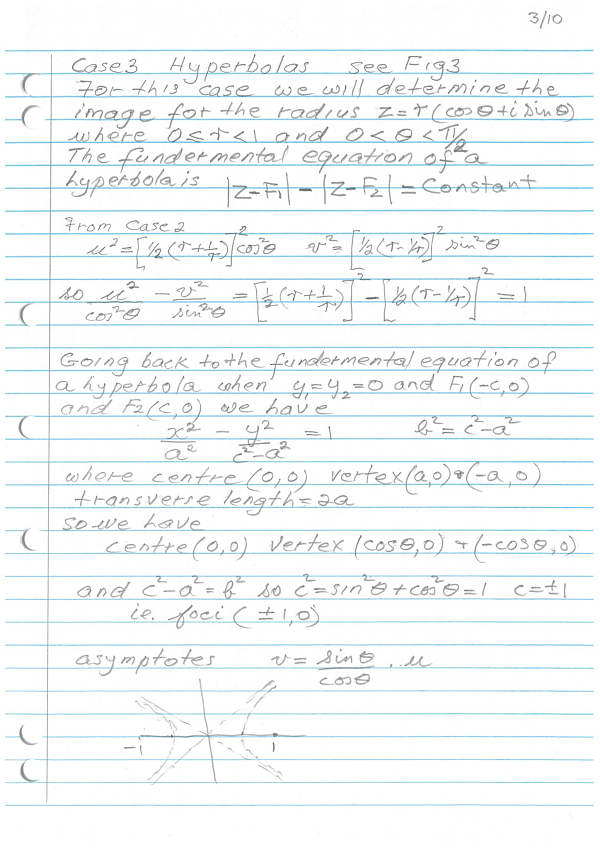 3/10
Case3 Hyperbolas see Fig3
For this case we will determine the
image for the radius z=r(cosθ+i sinθ)
where 0≤r<1 and 0<θ<π/2
The fundermental equation of a
hyperbola is |z-F₁| - |z-F₂| = Constant
From Case 2
u²=[½(r+1/r)]²cos²θ v²=[½(r-1/r)]² sin²θ
so u²/cos²θ - v²/sin²θ = [½(r+1/r)]² - [½(r-1/r)]² = 1
Going back to the fundermental equation of
a hyperbola when y₁=y₂=0 and F₁(-c,0)
and F₂(c,0) we have
x²/a² - y²/c²-a² = 1 b²=c²-a²
where centre (0,0) vertex(a,0)+(-a,0)
transverse length=2a
so we have
centre(0,0) vertex (cosθ,0) +(-cosθ,0)
and c²-a²=b² so c²=sin²θ+cos²θ=1 c=±1
i.e. foci (±1,0)
asymptotes v= sinθ/cosθ . u
-1 1